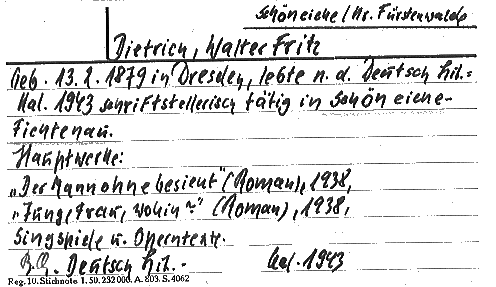 Schöneiche/Kr. Fürstenwalde
Dietrich, Walter Fritz
Geb. 13.2.1879 in Dresden, lebte n. d. Deutsch. Lit.-
Kal. 1943 schriftstellerisch tätig in Schöneiche-
Fichtenau.
Hauptwerke:
„Der Mann ohne besient" (Roman), 1938,
„Junge Frau, wohin?" (Roman), 1938,
Singspiele u. Operntexte.
Deutsch. Lit.- Kal. 1943
Reg. 10. Stichnote 1. 50. 232 000. A. 803. S. 4062